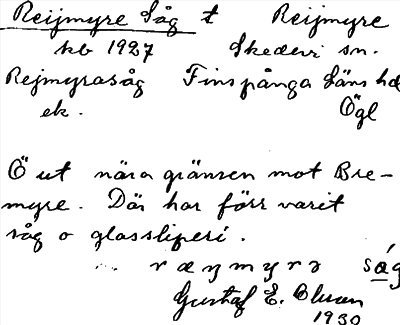 Reijmyre Såg t Reijmyre
kb 1927 Skedevi sn.
Rejmyrasåg Finspånga läns hd
ek. Ögl
Ö ut nära gränsen mot Bre-
myre. Där har förr varit
såg o glassliperi.
såg
Gustaf E. Olsson
1930